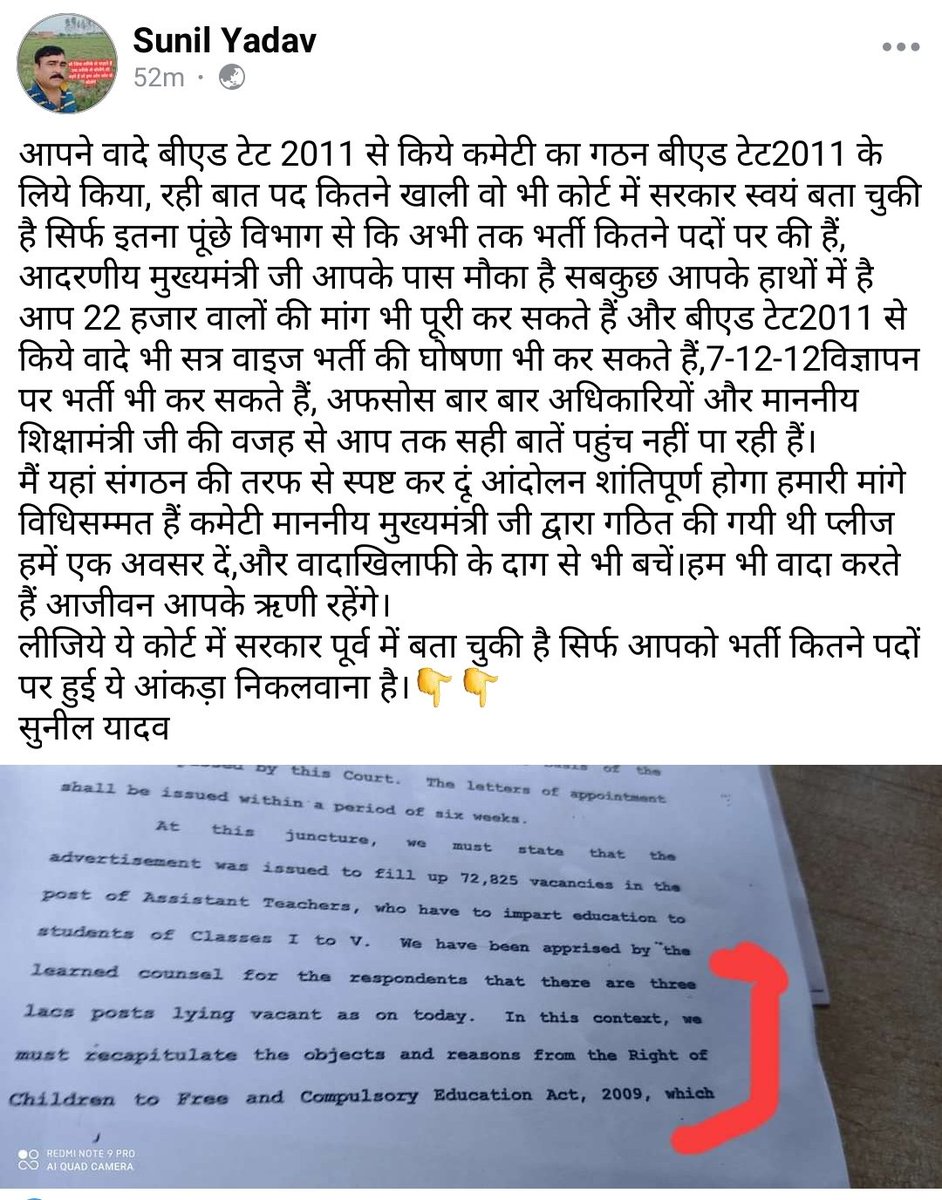 Sunil Yadav
52m
आपने वादे बीएड टेट 2011 से किये कमेटी का गठन बीएड टेट2011 के
लिये किया, रही बात पद कितने खाली वो भी कोर्ट में सरकार स्वयं बता चुकी
है सिर्फ इतना पूंछे विभाग से कि अभी तक भर्ती कितने पदों पर की हैं,
आदरणीय मुख्यमंत्री जी आपके पास मौका है सबकुछ आपके हाथों में है
आप 22 हजार वालों की मांग भी पूरी कर सकते हैं और बीएड टेट2011 से
किये वादे भी सत्र वाइज भर्ती की घोषणा भी कर सकते हैं,7-12-12विज्ञापन
पर भर्ती भी कर सकते हैं, अफसोस बार बार अधिकारियों और माननीय
शिक्षामंत्री जी की वजह से आप तक सही बातें पहुंच नहीं पा रही हैं।
मैं यहां संगठन की तरफ से स्पष्ट कर दूं आंदोलन शांतिपूर्ण होगा हमारी मांगे
विधिसम्मत हैं कमेटी माननीय मुख्यमंत्री जी द्वारा गठित की गयी थी प्लीज
हमें एक अवसर दें,और वादाखिलाफी के दाग से भी बचें।हम भी वादा करते
हैं आजीवन आपके ऋणी रहेंगे।
लीजिये ये कोर्ट में सरकार पूर्व में बता चुकी है सिर्फ आपको भर्ती कितने पदों
पर हुई ये आंकड़ा निकलवाना है।👇👇
सुनील यादव
by this Court. The letters of appointment
shall be issued within a period of six weeks.
At this juncture, we must state that the
advertisement was issued to fill up 72,825 vacancies in the
post of Assistant Teachers, who have to impart education to
students of Classes I to V. We have been apprised by the
learned counsel for the respondents that there are three
lacs posts lying vacant as on today. In this context, we
must recapitulate the objects and reasons from the Right of
Children to Free and Compulsory Education Act, 2009, which
REDMI NOTE 9 PRO
AI QUAD CAMERA